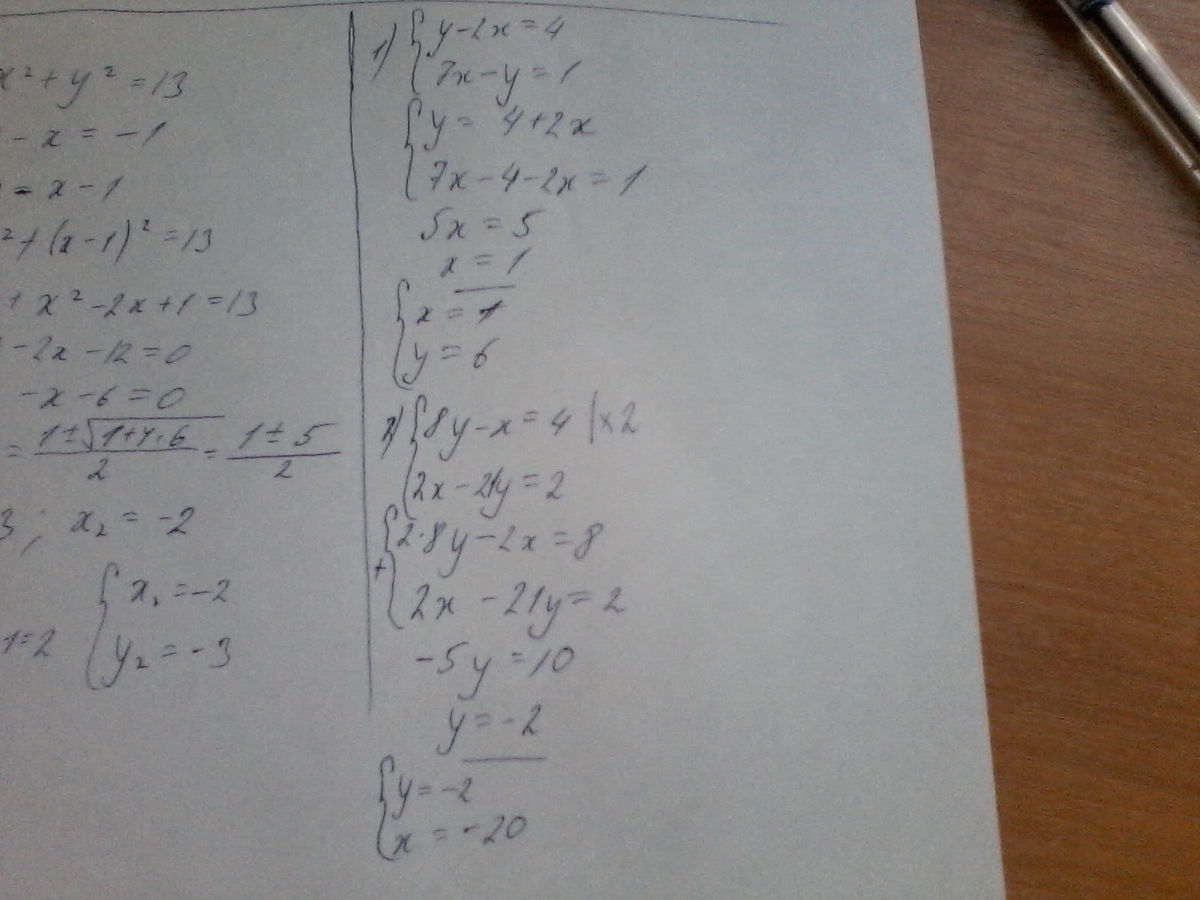 x² + y² = 13
- x = -1
= x - 1
² + (x-1)² = 13
+ x² - 2x + 1 = 13
- 2x - 12 = 0
- x - 6 = 0
= \frac{1 ± √(1+4·6)}{2} = \frac{1 ± 5}{2}
3; x₂ = -2
{ x₁ = -2
1 = 2
y₂ = -3
1) { y - 2x = 4
7x - y = 1
{ y = 4 + 2x
7x - 4 - 2x = 1
5x = 5
x = 1
{ x = 1
y = 6
2) { 8y - x = 4 | x2
2x - 21y = 2
+ { 2·8y - 2x = 8
2x - 21y = 2
-5y = 10
y = -2
{ y = -2
x = -20